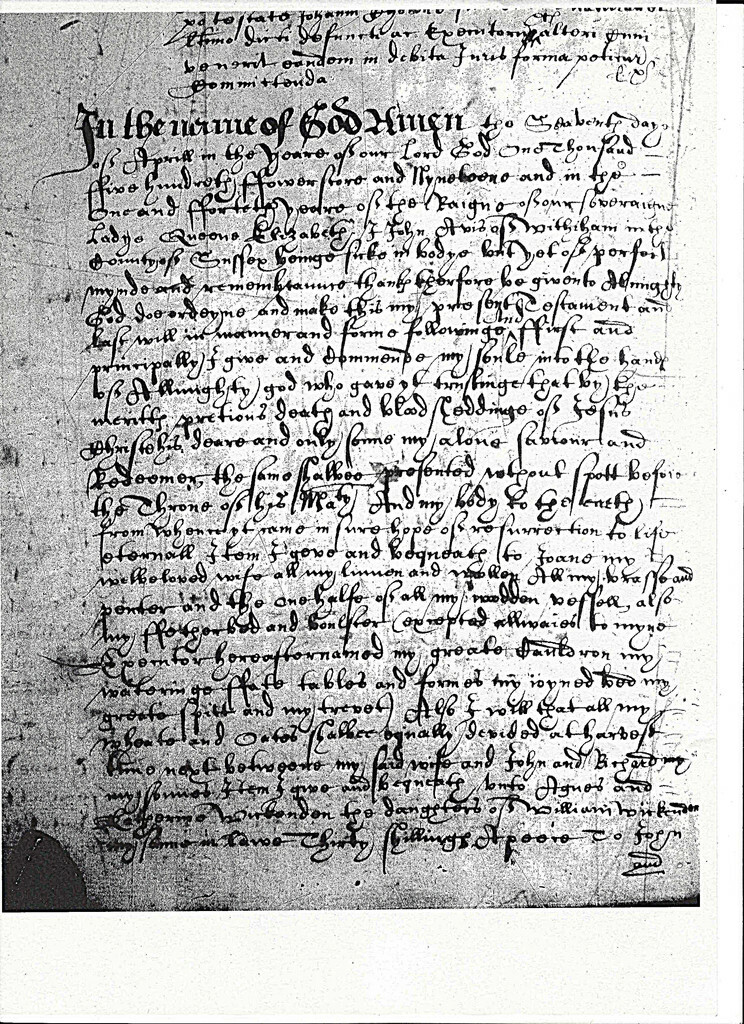 potestate Johann
Ultimo dicti defuncti ac Executori alteri cum
venerit eandem in debita Juris forma petitur
Committenda
In the name of God Amen the Seaventh day
of Aprill in the yeare of our Lord God One Thousand
ffive hundreth ffowerscore and Nyneteene and in the
One and fforteth yeare of the Raigne of our Soveraigne
Ladye Queene Elizabeth I John Avis of Withiham in the
County of Sussex beinge sicke in bodye but yet of perfect
mynde and remembraunce thank therfore be given to Almighty
God doe ordeyne and make this my present Testament and
Last will in manner and forme followinge And ffirst and
principally I give and Commende my soule into the hand
of Allmighty god who gave yt trustinge that by the
meritts pretious death and blood sheddinge of Jesus
Christe his deare and only sonne my alone saviour and
Redeemer the same shalbee presented without spott before
the Throne of his Maty And my body to the earth
from whence yt came in sure hope of resurrection to life
eternall Item I geve and bequeath to Joane my
welbeloved wife all my linnen and wollen All my brasse and
pewter and the one halfe of all my wodden vessell also
my ffetherbed and boulster excepted allwaies to myne
Executor hereafter named my greate Cauldron my
wateringe ffate tables and formes my ioyned bed my
greate spitt and my trevet Also I will that all my
Wheate and Oates shalbee equally devided at harvest
time next betweene my said wife and John and Richard my
my sonnes Item I give and bequeath unto Agnes and
Katherine Wickenden the daughters of William Wickenden
my sonne in lawe Thirty shillings Apeece To John
and